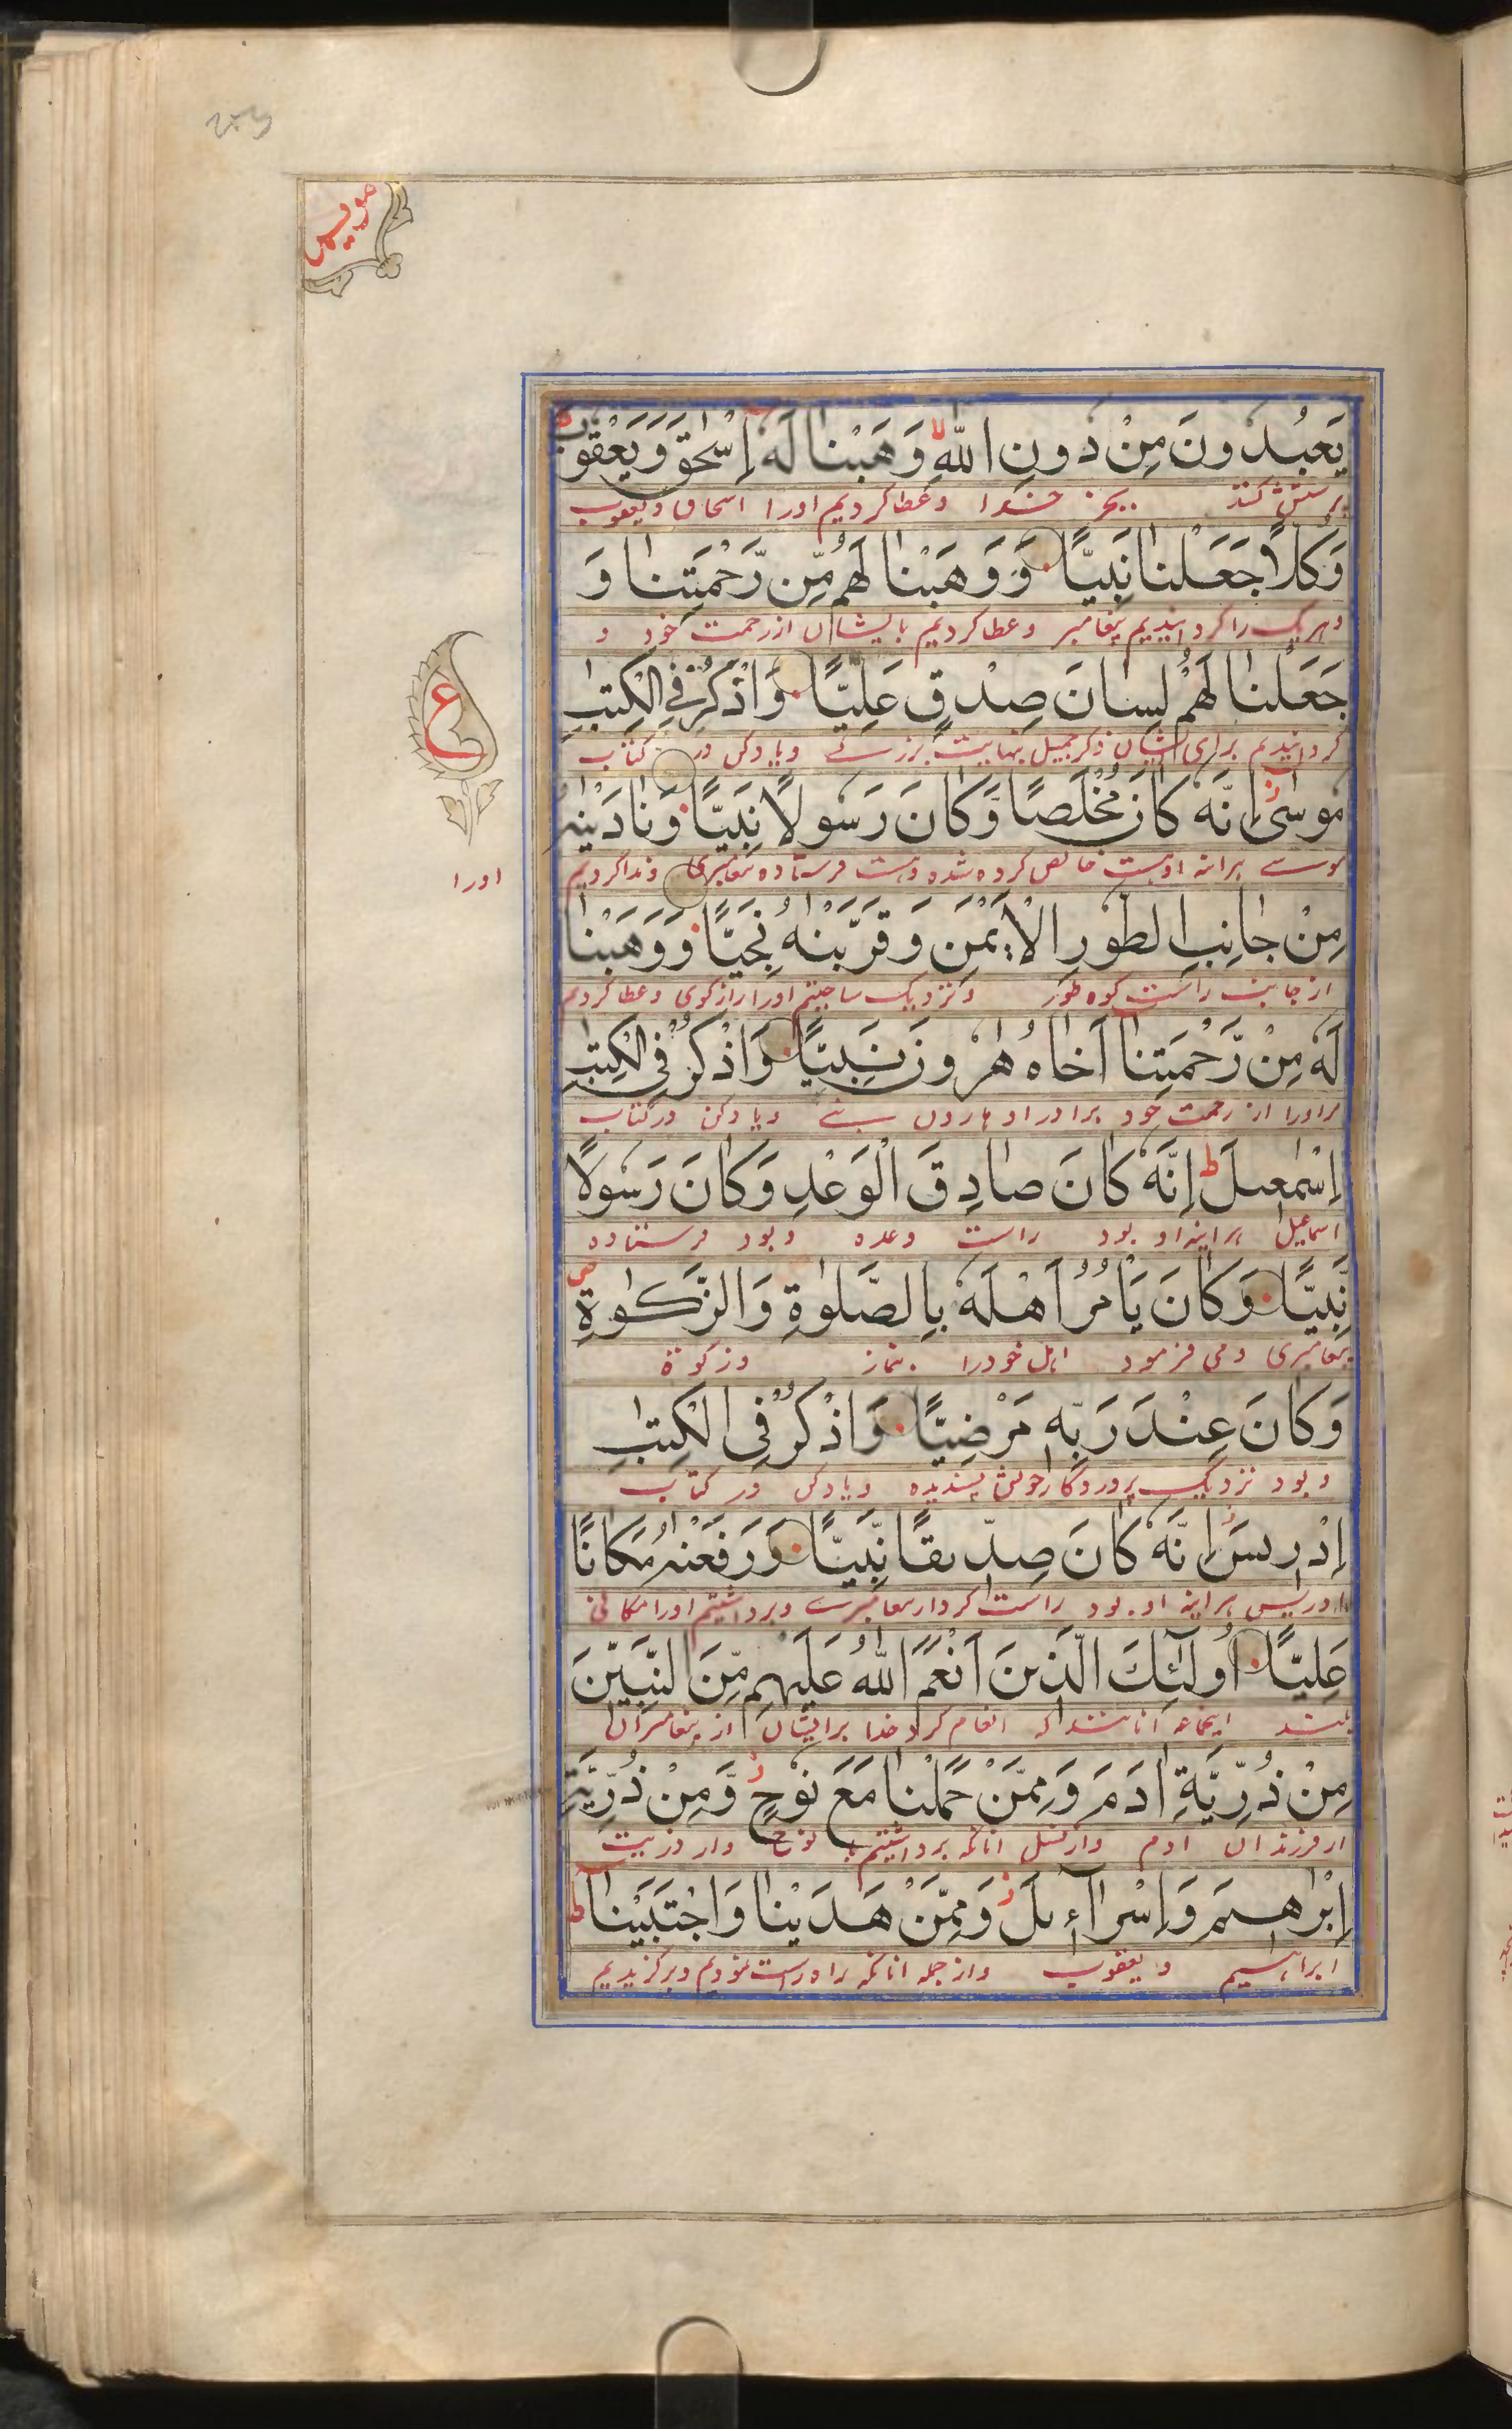 يَعْبُدُونَ مِنْ دُونِ اللّٰهِ ۙ وَهَبْنَا لَهٗ اِسْحٰقَ وَيَعْقُوْبَ ؕ
پرستش کنند بجز خدا و عطا کردیم اورا اسحاق و یعقوب
وَكُلًّا جَعَلْنَا نَبِيًّا وَوَهَبْنَا لَهُمْ مِّنْ رَّحْمَتِنَا وَ
و هریک را گردانیدیم پیغامبر و عطا کردیم بایشان از رحمت خود و
جَعَلْنَا لَهُمْ لِسَانَ صِدْقٍ عَلِيًّا وَاذْكُرْ فِي الْكِتٰبِ
گردانیدیم برای ایشان ذکر جمیل نهایت بزرگ و یاد کن در کتاب
ع
مُوْسٰٓى ز اِنَّهٗ كَانَ مُخْلَصًا وَّكَانَ رَسُوْلًا نَبِيًّا وَنَادَيْنٰهُ
موسے هراینه او هست خالص کرده شده و هست فرستاده پیغامبری و ندا کردیم
اورا
مِنْ جَانِبِ الطُّوْرِ الْاَيْمَنِ وَقَرَّبْنٰهُ نَجِيًّا وَوَهَبْنَا
از جانب راست کوه طور و نزدیک ساختیم اورا راز گوی و عطا کردیم
لَهٗ مِنْ رَّحْمَتِنَآ اَخَاهُ هٰرُوْنَ نَبِيًّا وَاذْكُرْ فِي الْكِتٰبِ
مراورا از رحمت خود برادر او هارون نبے و یاد کن در کتاب
اِسْمٰعِيْلَ ط اِنَّهٗ كَانَ صَادِقَ الْوَعْدِ وَكَانَ رَسُوْلًا
اسماعیل هراینه او بود راست وعده و بود فرستاده
نَّبِيًّا وَكَانَ يَاْمُرُ اَهْلَهٗ بِالصَّلٰوةِ وَالزَّكٰوةِ ص
پیغامبری و می فرمود اهل خود را بنماز و زکوة
وَكَانَ عِنْدَ رَبِّهٖ مَرْضِيًّا وَاذْكُرْ فِي الْكِتٰبِ
و بود نزدیک پروردگار خویش پسندیده و یاد کن در کتاب
اِدْرِيْسَ ز اِنَّهٗ كَانَ صِدِّيْقًا نَّبِيًّا وَرَفَعْنٰهُ مَكَانًا
ادریس هراینه او بود راست کردار پیغامبرے و برداشتیم اورا مکانی
عَلِيًّا اُولٰٓئِكَ الَّذِيْنَ اَنْعَمَ اللّٰهُ عَلَيْهِمْ مِّنَ النَّبِيّٖنَ
بلند اینجماعه آنانند که انعام کرد خدا بر ایشان از پیغامبران
مِنْ ذُرِّيَّةِ اٰدَمَ وَمِمَّنْ حَمَلْنَا مَعَ نُوْحٍ ز وَّمِنْ ذُرِّيَّةِ
از فرزندان ادم و از نسل آنانکه برداشتیم با نوح و از ذریت
اِبْرٰهِيْمَ وَاِسْرَآءِيْلَ ز وَمِمَّنْ هَدَيْنَا وَاجْتَبَيْنَا ط
ابراهیم و یعقوب و از جمله آنانکه راه راست نمودیم و برگزیدیم